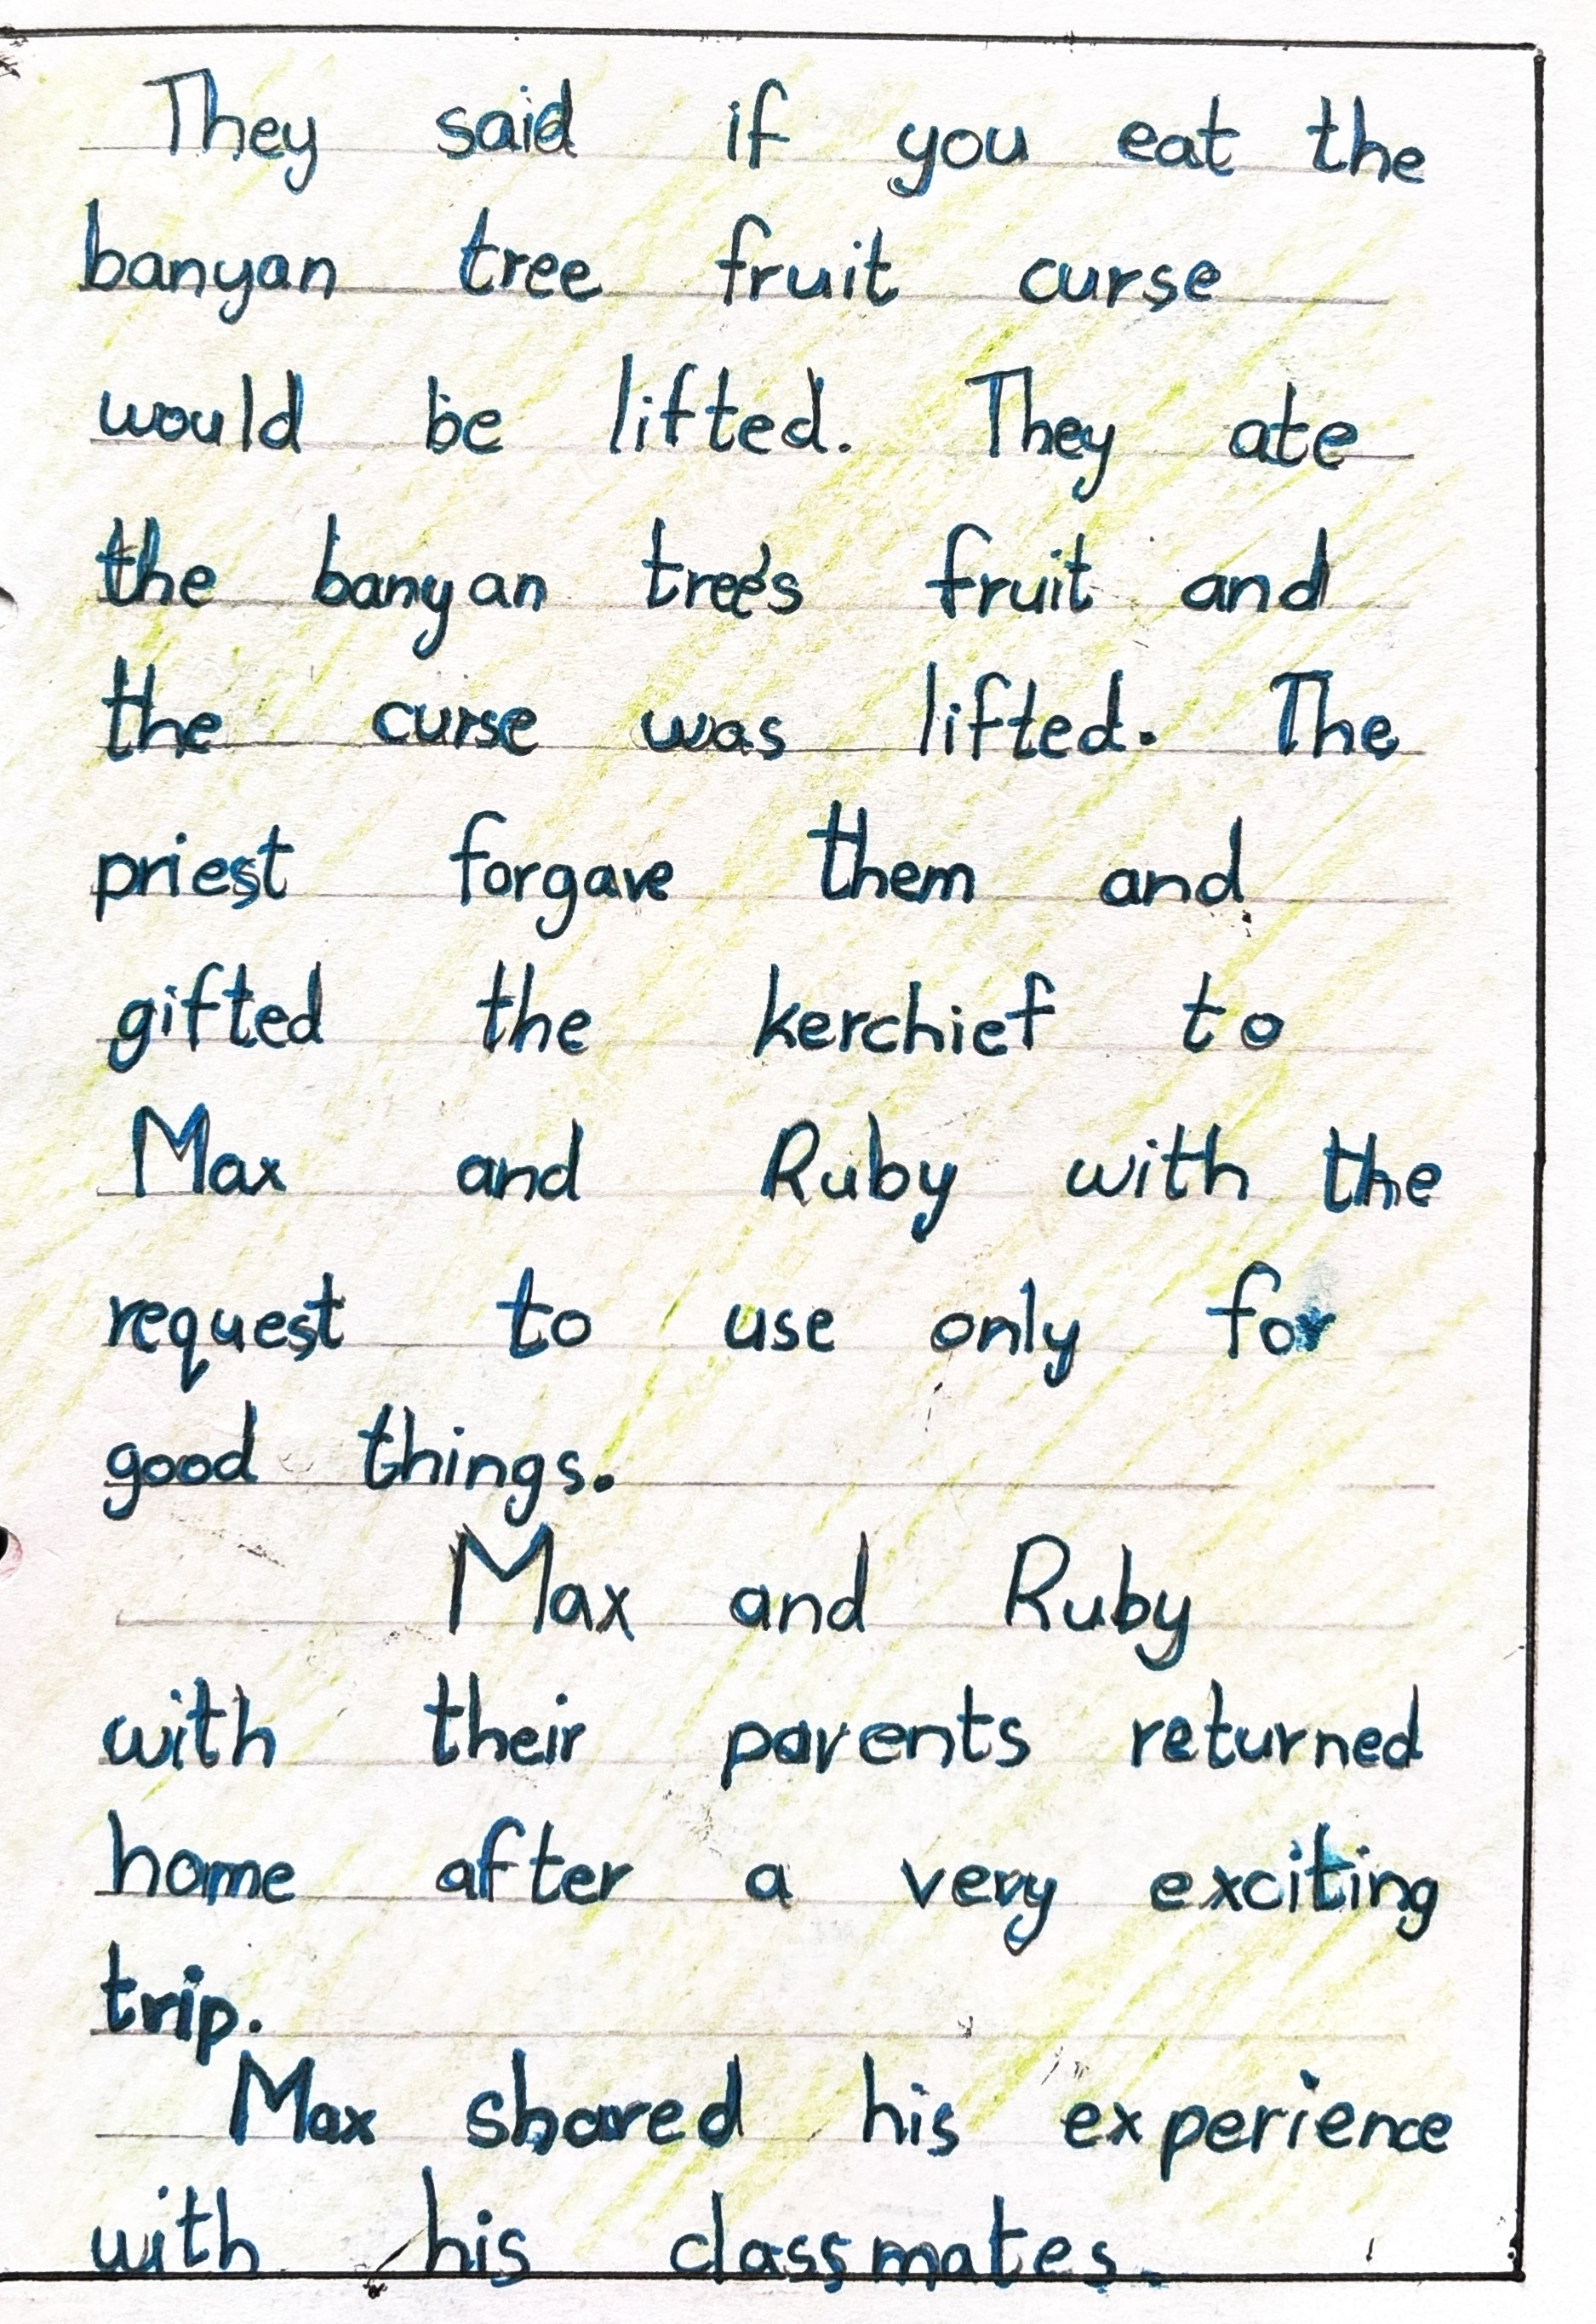 They said if you eat the
banyan tree fruit curse
would be lifted. They ate
the banyan tree's fruit and
the curse was lifted. The
priest forgave them and
gifted the kerchief to
Max and Ruby with the
request to use only for
good things.
Max and Ruby
with their parents returned
home after a very exciting
trip.
Max shared his experience
with his classmates.